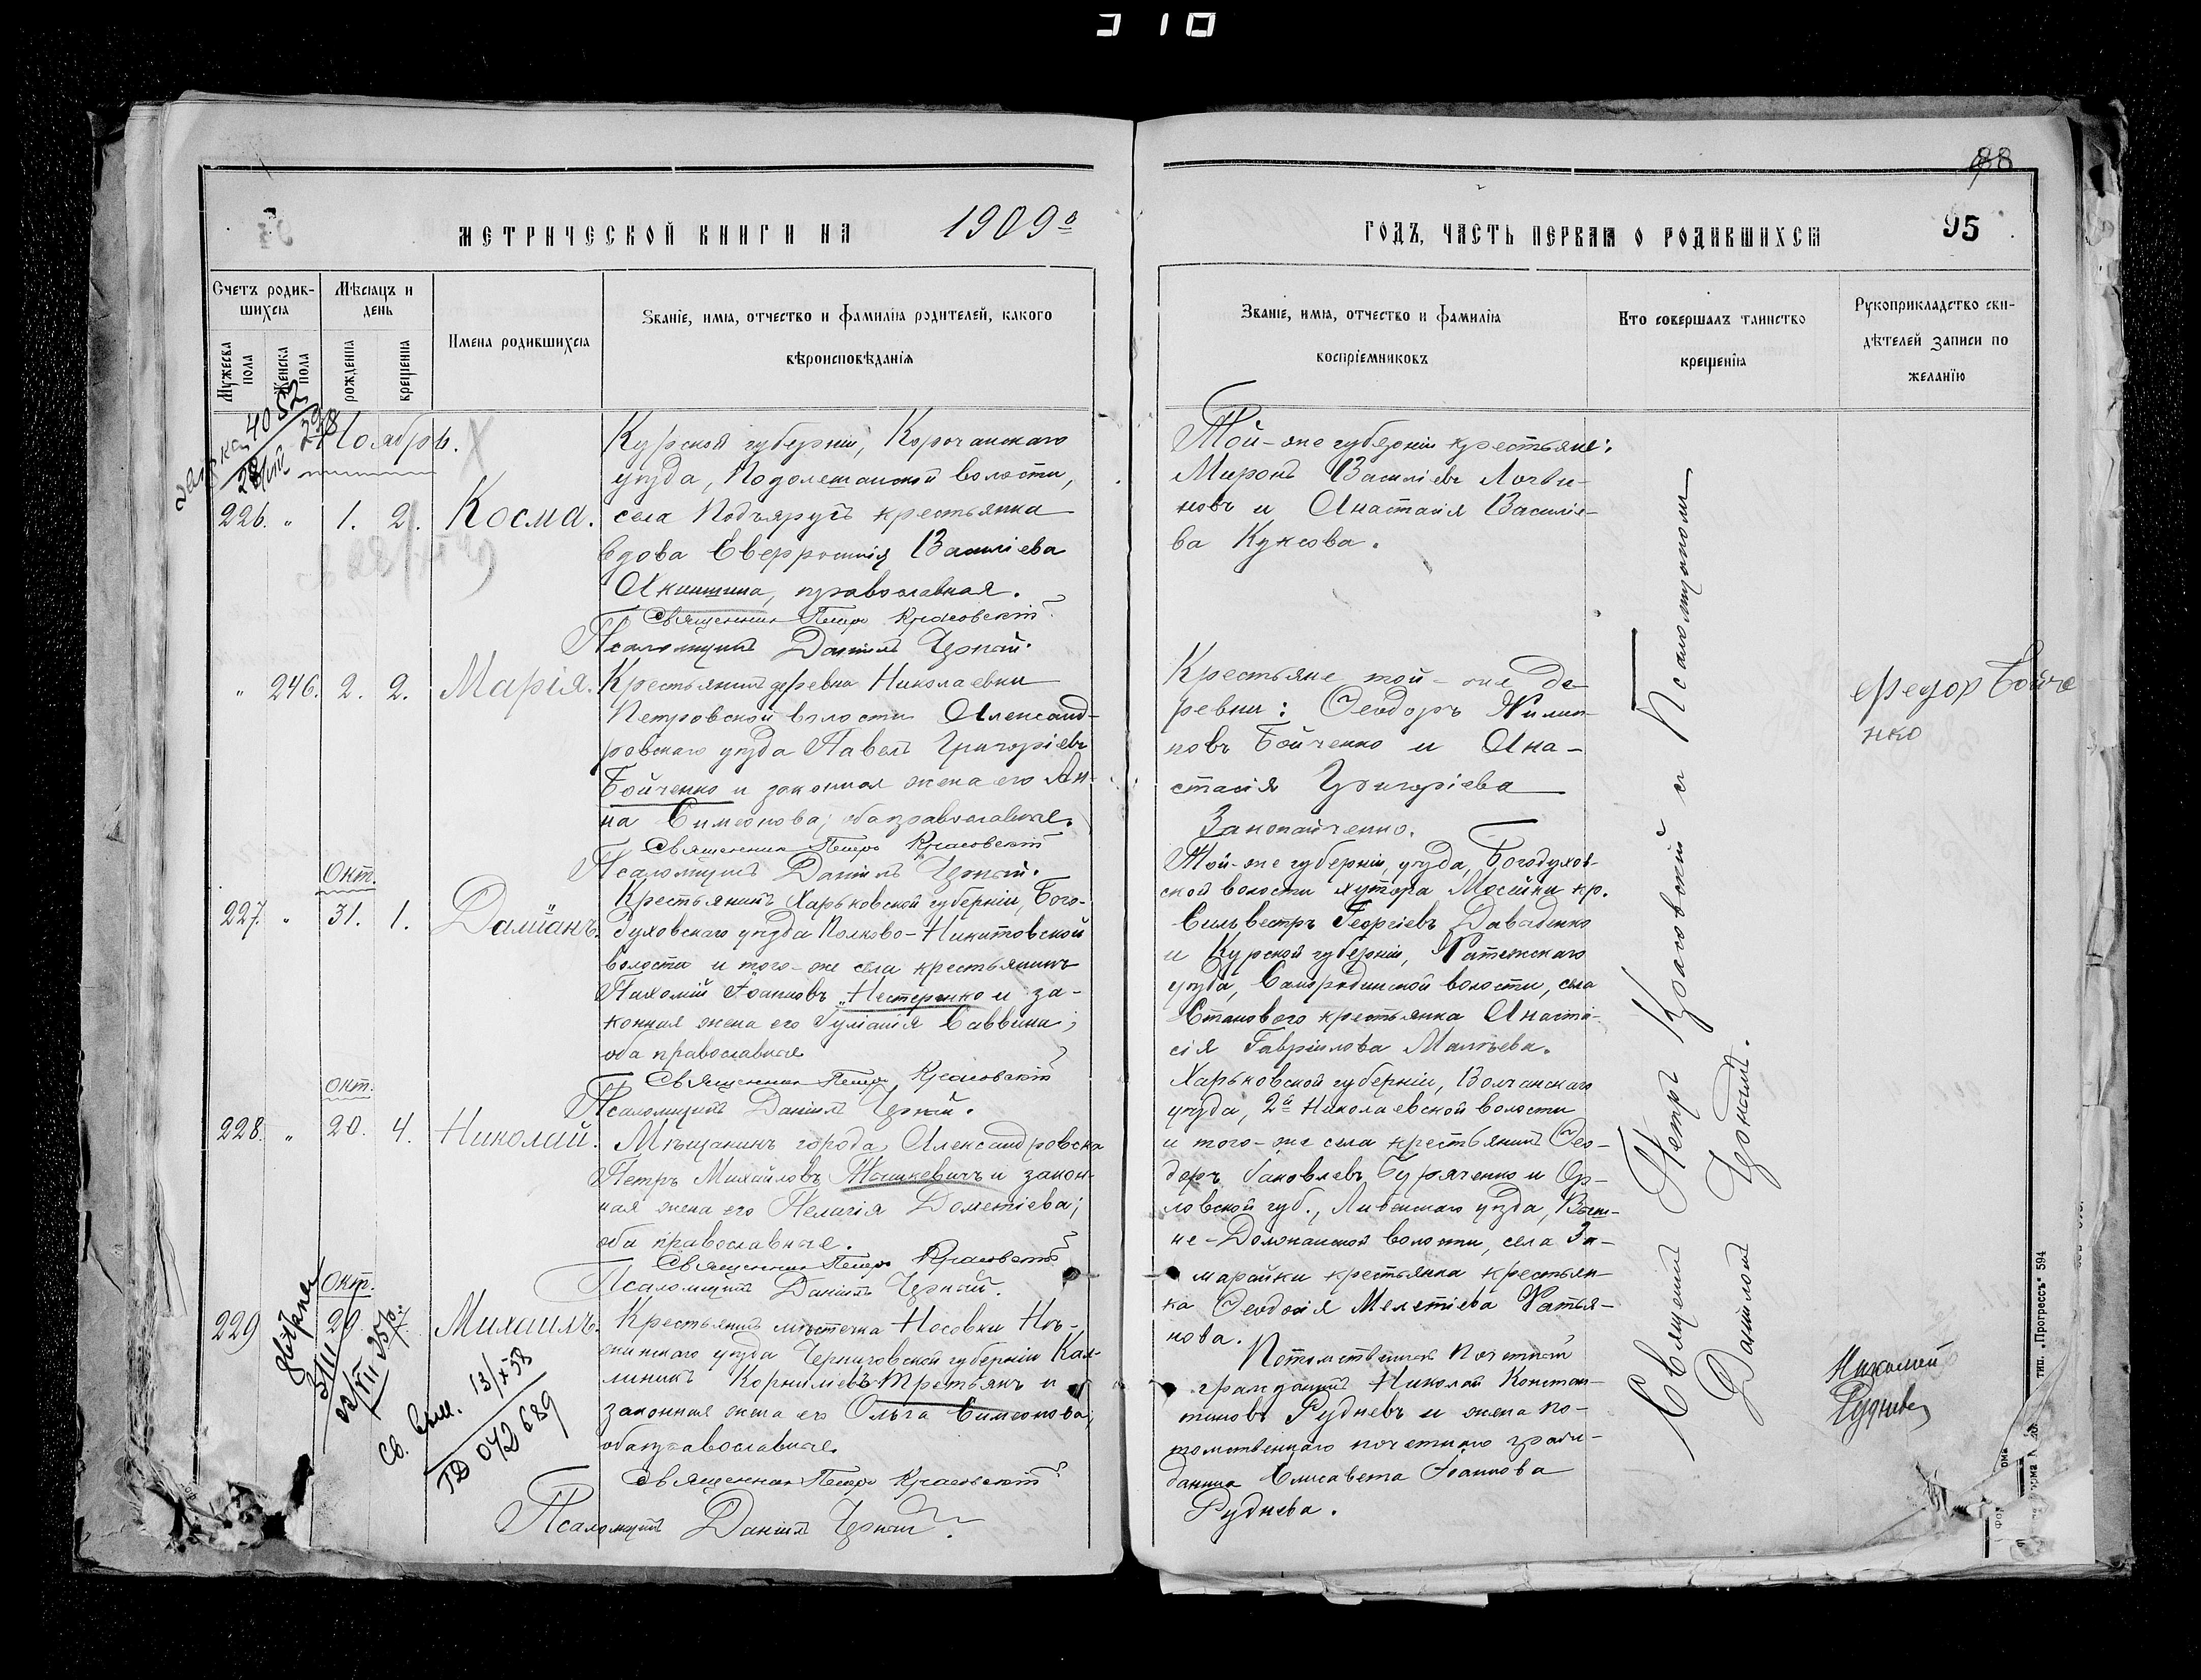 310
88
МЕТРИЧЕСКОЙ КНИГИ НА 1909й
ГОДЪ, ЧАСТЬ ПЕРВАЯ О РОДИВШИХСЯ 95
Счетъ родив-
шихся
Мужеска пола
Женска пола
Мѣсяцъ и
день
рожденія
крещенія
Имена родившихся
Званіе, имя, отчество и фамилія родителей, какого
вѣроисповѣданія
Званіе, имя, отчество и фамилія
воспріемниковъ
Кто совершалъ таинство
крещенія
Рукоприкладство сви-
дѣтелей записи по
желанію
Ноябрь.
226. „ 1. 2. Косма.
Курской губерніи, Корочанскаго
уѣзда, Подолешанской волости,
села Подъяругъ крестьянка
вдова Евфросинія Васильева
Акиншина, православная.
Священникъ Петръ Красовскій
Псаломщикъ Даніилъ Цопай.
Той-же губерніи крестьяне:
Миронъ Василіевъ Логви-
новъ и Анастасія Василіе-
ва Куксова.
„ 246. 2. 2. Марія.
Крестьянинъ деревни Николаевки
Петровской волости Александ-
ровскаго уѣзда Павелъ Григоріевъ
Бойченко и законная жена его Ан-
на Симеонова; оба православные.
Священникъ Петръ Красовскій
Псаломщикъ Даніилъ Цопай.
Крестьяне той-же де-
ревни: Ѳеодоръ Филип-
повъ Бойченко и Ана-
стасія Григоріева
Закопайченко.
Федор Бойче
нко
Окт.
227. „ 31. 1. Даміанъ.
Крестьянинъ Харьковской губерніи, Бого-
духовскаго уѣзда Полково-Никитовской
волости и того-же села крестьянинъ
Пахомій Іоанновъ Нестеренко и за-
конная жена его Іуліанія Саввина;
оба православные
Священникъ Петръ Красовскій
Псаломщикъ Даніилъ Цопай.
Той-же губерніи, уѣзда, Богодухов-
ской волости хутора Мосейки кр.
Сильвестръ Георгіевъ Даваденко
и Курской губерніи, Фатежскаго
уѣзда, Самородинской волости, села
Становаго крестьянка Анаста-
сія Гавріилова Малѣева.
Окт.
228. „ 20. 4. Николай.
Мѣщанинъ города Александровска
Петръ Михайловъ Мышкевичъ и закон-
ная жена его Пелагія Дометіева;
оба православные.
Священникъ Петръ Красовскій
Псаломщикъ Даніилъ Цопай.
Харьковской губерніи, Волчанскаго
уѣзда, 2й Николаевской волости
и того-же села крестьянинъ Ѳео-
доръ Іаковлевъ Буряченко и Ор-
ловской губ., Ливенскаго уѣзда, Выш-
не-Должанской волости, села За-
марайки крестьянка крестьян-
ка Ѳеодосія Мелетіева Фатья-
нова.
Окт.
229 29. Михаилъ.
Крестьянинъ мѣстечка Носовки Нѣ-
жинскаго уѣзда Черниговской губерніи Кал-
линикъ Корниліевъ Третьякъ и
законная жена его Ольга Симеонова;
оба православные.
Священникъ Петръ Красовскій
Псаломщикъ Даніилъ Цопай.
Потомственный Почетный
гражданинъ Николай Констан-
тиновъ Рудневъ и жена по-
томственнаго почетнаго граж-
данина Елисавета Іоаннова
Руднева.
Николай
Рудневъ
Священникъ Петръ Красовскій съ Псаломщикомъ
Даніиломъ Цопаемъ.
Св. 13/X 58
ТД 072689
тип. „Прогрессъ" 594